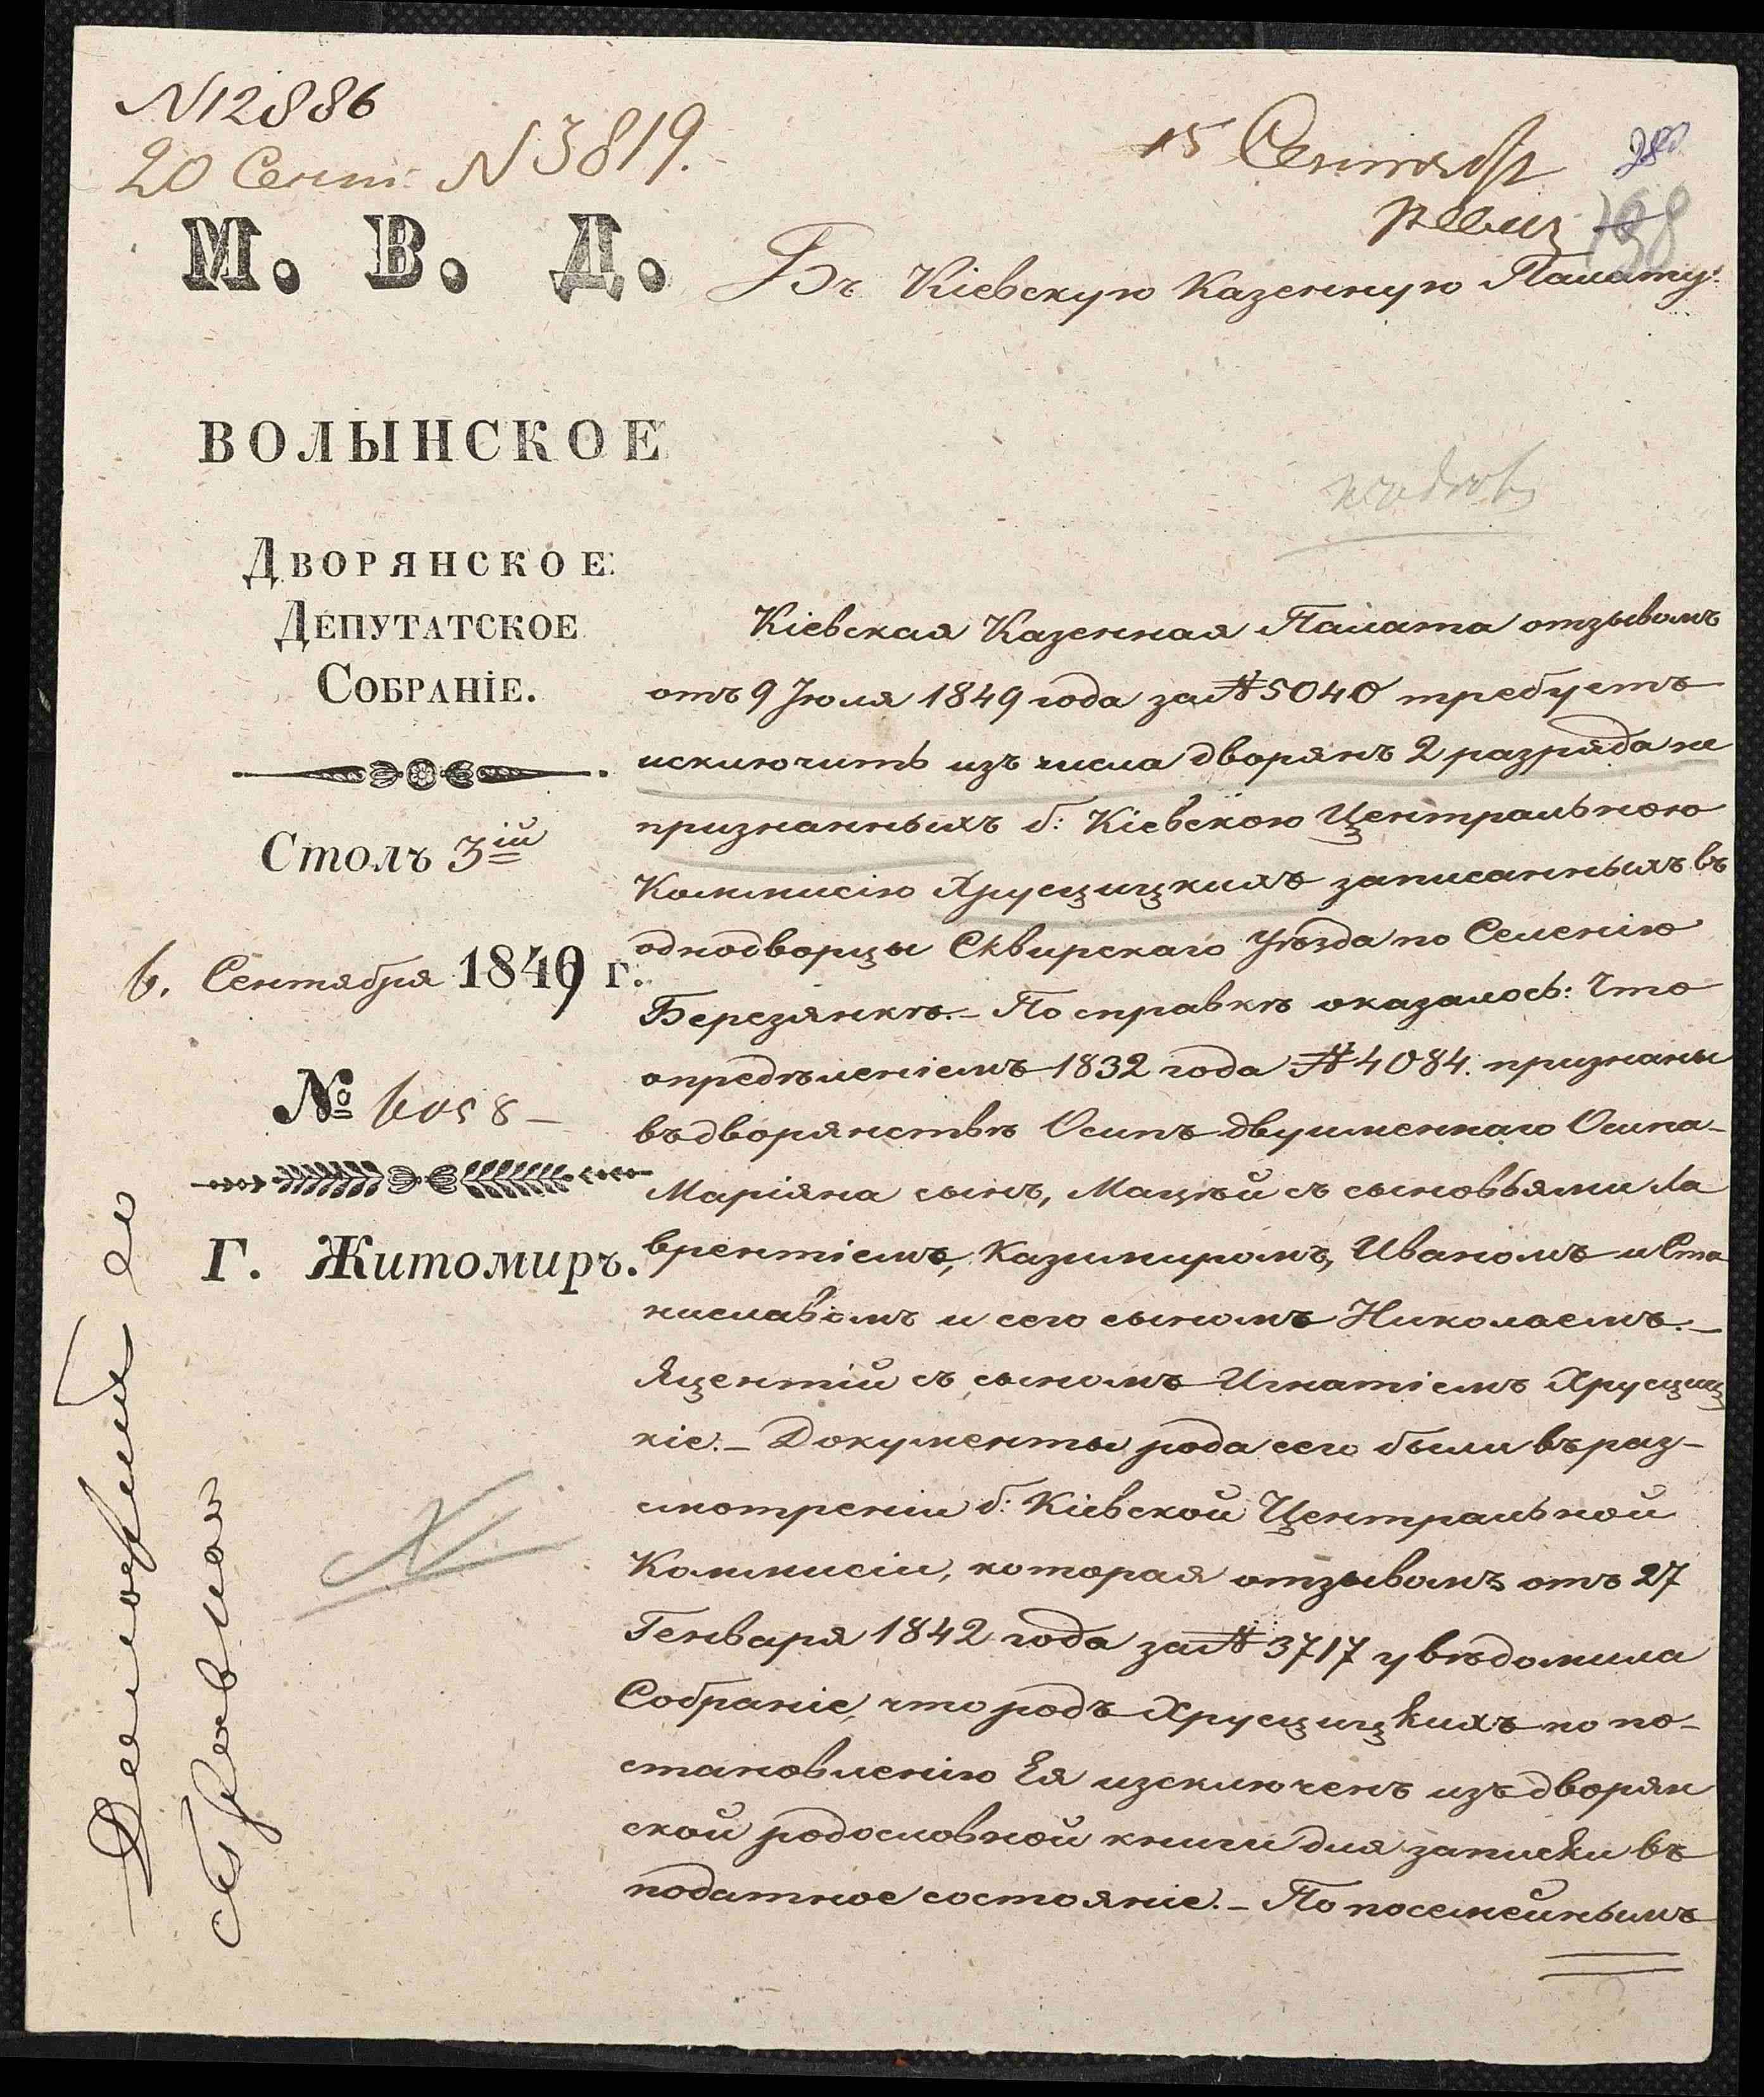 N12886
20 Сент: N3819.
15 Сентябр
ревиз
198
М. В. Д.
Въ Кіевскую Казенную Палату.
ВОЛЫНСКОЕ
ДВОРЯНСКОЕ
ДЕПУТАТСКОЕ
СОБРАНІЕ.
Столъ 3ій
6. Сентября 1849 г.
№ 6058
Г. Житомиръ.
Кіевская Казенная Палата отзывомъ
отъ 9 Іюля 1849 года за № 5040 требуетъ
исключить изъ числа дворянъ 2 разряда не
признанныхъ б: Кіевскою Центральною
Коммисіею Хрусцицкихъ записанныхъ въ
однодворцы Сквирскаго уѣзда по Селенію
Березянкѣ.– По справкѣ оказалось: что
опредѣленіемъ 1832 года № 4084. признаны
въ дворянствѣ Осипъ двуименнаго Осипа-
Маріяна сынъ, Мацѣй съ сыновьями Ла
врентіемъ, Казимиромъ, Иваномъ и Ста
ниславомъ и сего сыномъ Николаемъ.–
Яцентій съ сыномъ Игнатіемъ Хрусциц
кіе.– Документы рода сего были въ раз-
смотреніи б: Кіевской Центральной
Коммисіи, которая отзывомъ отъ 27
Генваря 1842 года за № 3717 увѣдомила
Собраніе, что родъ Хрусцицкихъ по по-
становленію Ея изключенъ изъ дворян
ской родословной книги для записки въ
податное состояніе.– По посемейнымъ